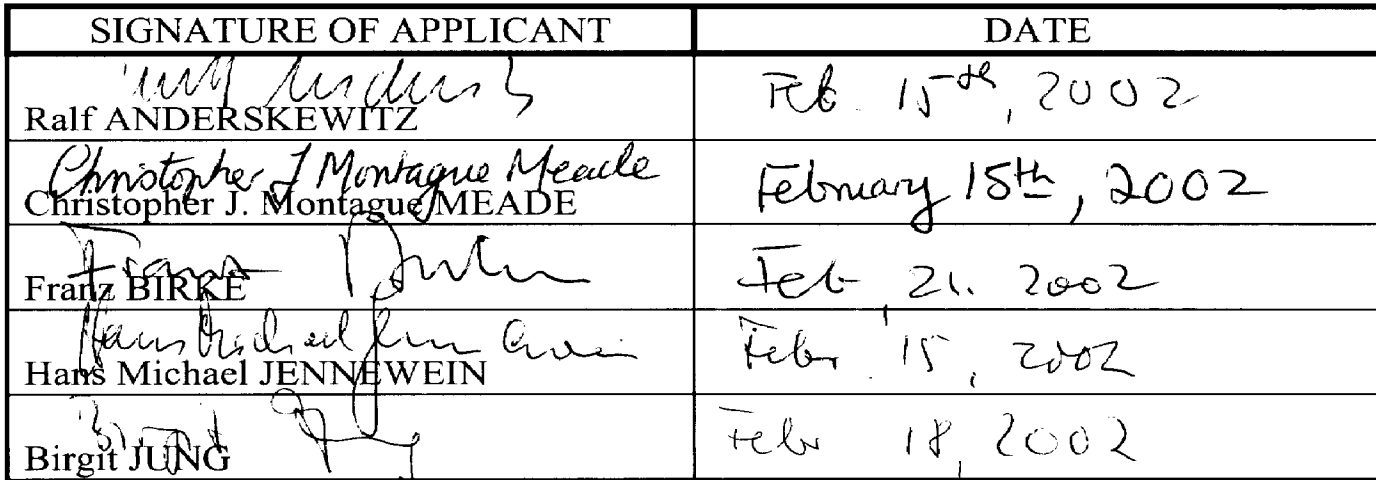 SIGNATURE OF APPLICANT DATE
Ralf ANDERSKEWITZ Feb. 15th, 2002
Christopher J Montague Meade
Christopher J. Montague MEADE February 15th, 2002
Franz Birke
Franz BIRKE Feb 21. 2002
Hans Michael Jennewein
Hans Michael JENNEWEIN Febr. 15, 2002
Birgit Jung
Birgit JUNG Febr 18, 2002